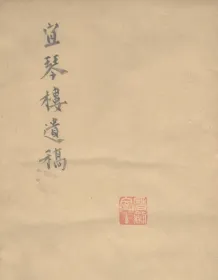 宜琴樓遺稿